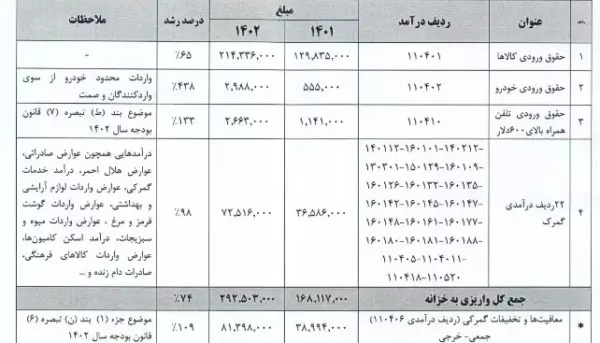 ردیف	عنوان	ردیف درآمد	مبلغ	درصد رشد	ملاحظات
۱۴۰۱	۱۴۰۲
۱	حقوق ورودی کالاها	۱۱۰۴۰۱	۱۲۹,۸۳۵,۰۰۰	۲۱۴,۳۳۶,۰۰۰	٪۶۵	-
۲	حقوق ورودی خودرو	۱۱۰۴۰۲	۵۵۵,۰۰۰	۲,۹۸۸,۰۰۰	٪۴۳۸	واردات محدود خودرو از سوی
واردکنندگان و صمت
۳	حقوق ورودی تلفن
همراه بالای ۶۰۰دلار	۱۱۰۴۱۰	۱,۱۴۱,۰۰۰	۲,۶۶۳,۰۰۰	٪۱۳۳	موضوع بند (ط) تبصره (۷) قانون
بودجه سال ۱۴۰۲
۴	۲۲ردیف درآمدی
گمرک
۱۴۰۱۱۲-۱۶۰۱۰۱-۱۴۰۲۱۲-
۱۳۰۳۰۱-۱۵۰۱۲۹-۱۶۰۱۰۹-
۱۶۰۱۲۶-۱۶۰۱۳۲-۱۶۰۱۳۵-
۱۶۰۱۴۲-۱۶۰۱۴۵-۱۶۰۱۴۷-
۱۶۰۱۴۸-۱۶۰۱۶۱-۱۶۰۱۷۷-
۱۶۰۱۸۰-۱۶۰۱۸۱-۱۶۰۱۸۸-
۱۱۰۴۰۵-۱۱۰۴۰۱۱-
۱۱۰۴۱۸-۱۱۰۵۲۰
۳۶,۵۸۶,۰۰۰	۷۲,۵۱۶,۰۰۰	٪۹۸
درآمدهایی همچون عوارض صادراتی،
عوارض هلال احمر، درآمد خدمات
گمرکی، عوارض واردات لوازم آرایشی
و بهداشتی، عوارض واردات گوشت
قرمز و مرغ ، عوارض واردات میوه و
سبزیجات، درآمد اسکن کامیون‌ها،
عوارض واردات کالاهای فرهنگی،
صادرات دام زنده و ...
جمع کل واریزی به خزانه	۱۶۸,۱۱۷,۰۰۰	۲۹۲,۵۰۳,۰۰۰	٪۷۴
*	معافیت‌ها و تخفیفات گمرکی (ردیف درآمدی ۱۱۰۴۰۶)
جمعی- خرجی	۳۸,۹۹۴,۰۰۰	۸۱,۳۹۸,۰۰۰	٪۱۰۹	موضوع جزء (۱) بند (ن) تبصره (۶)
قانون بودجه سال ۱۴۰۲